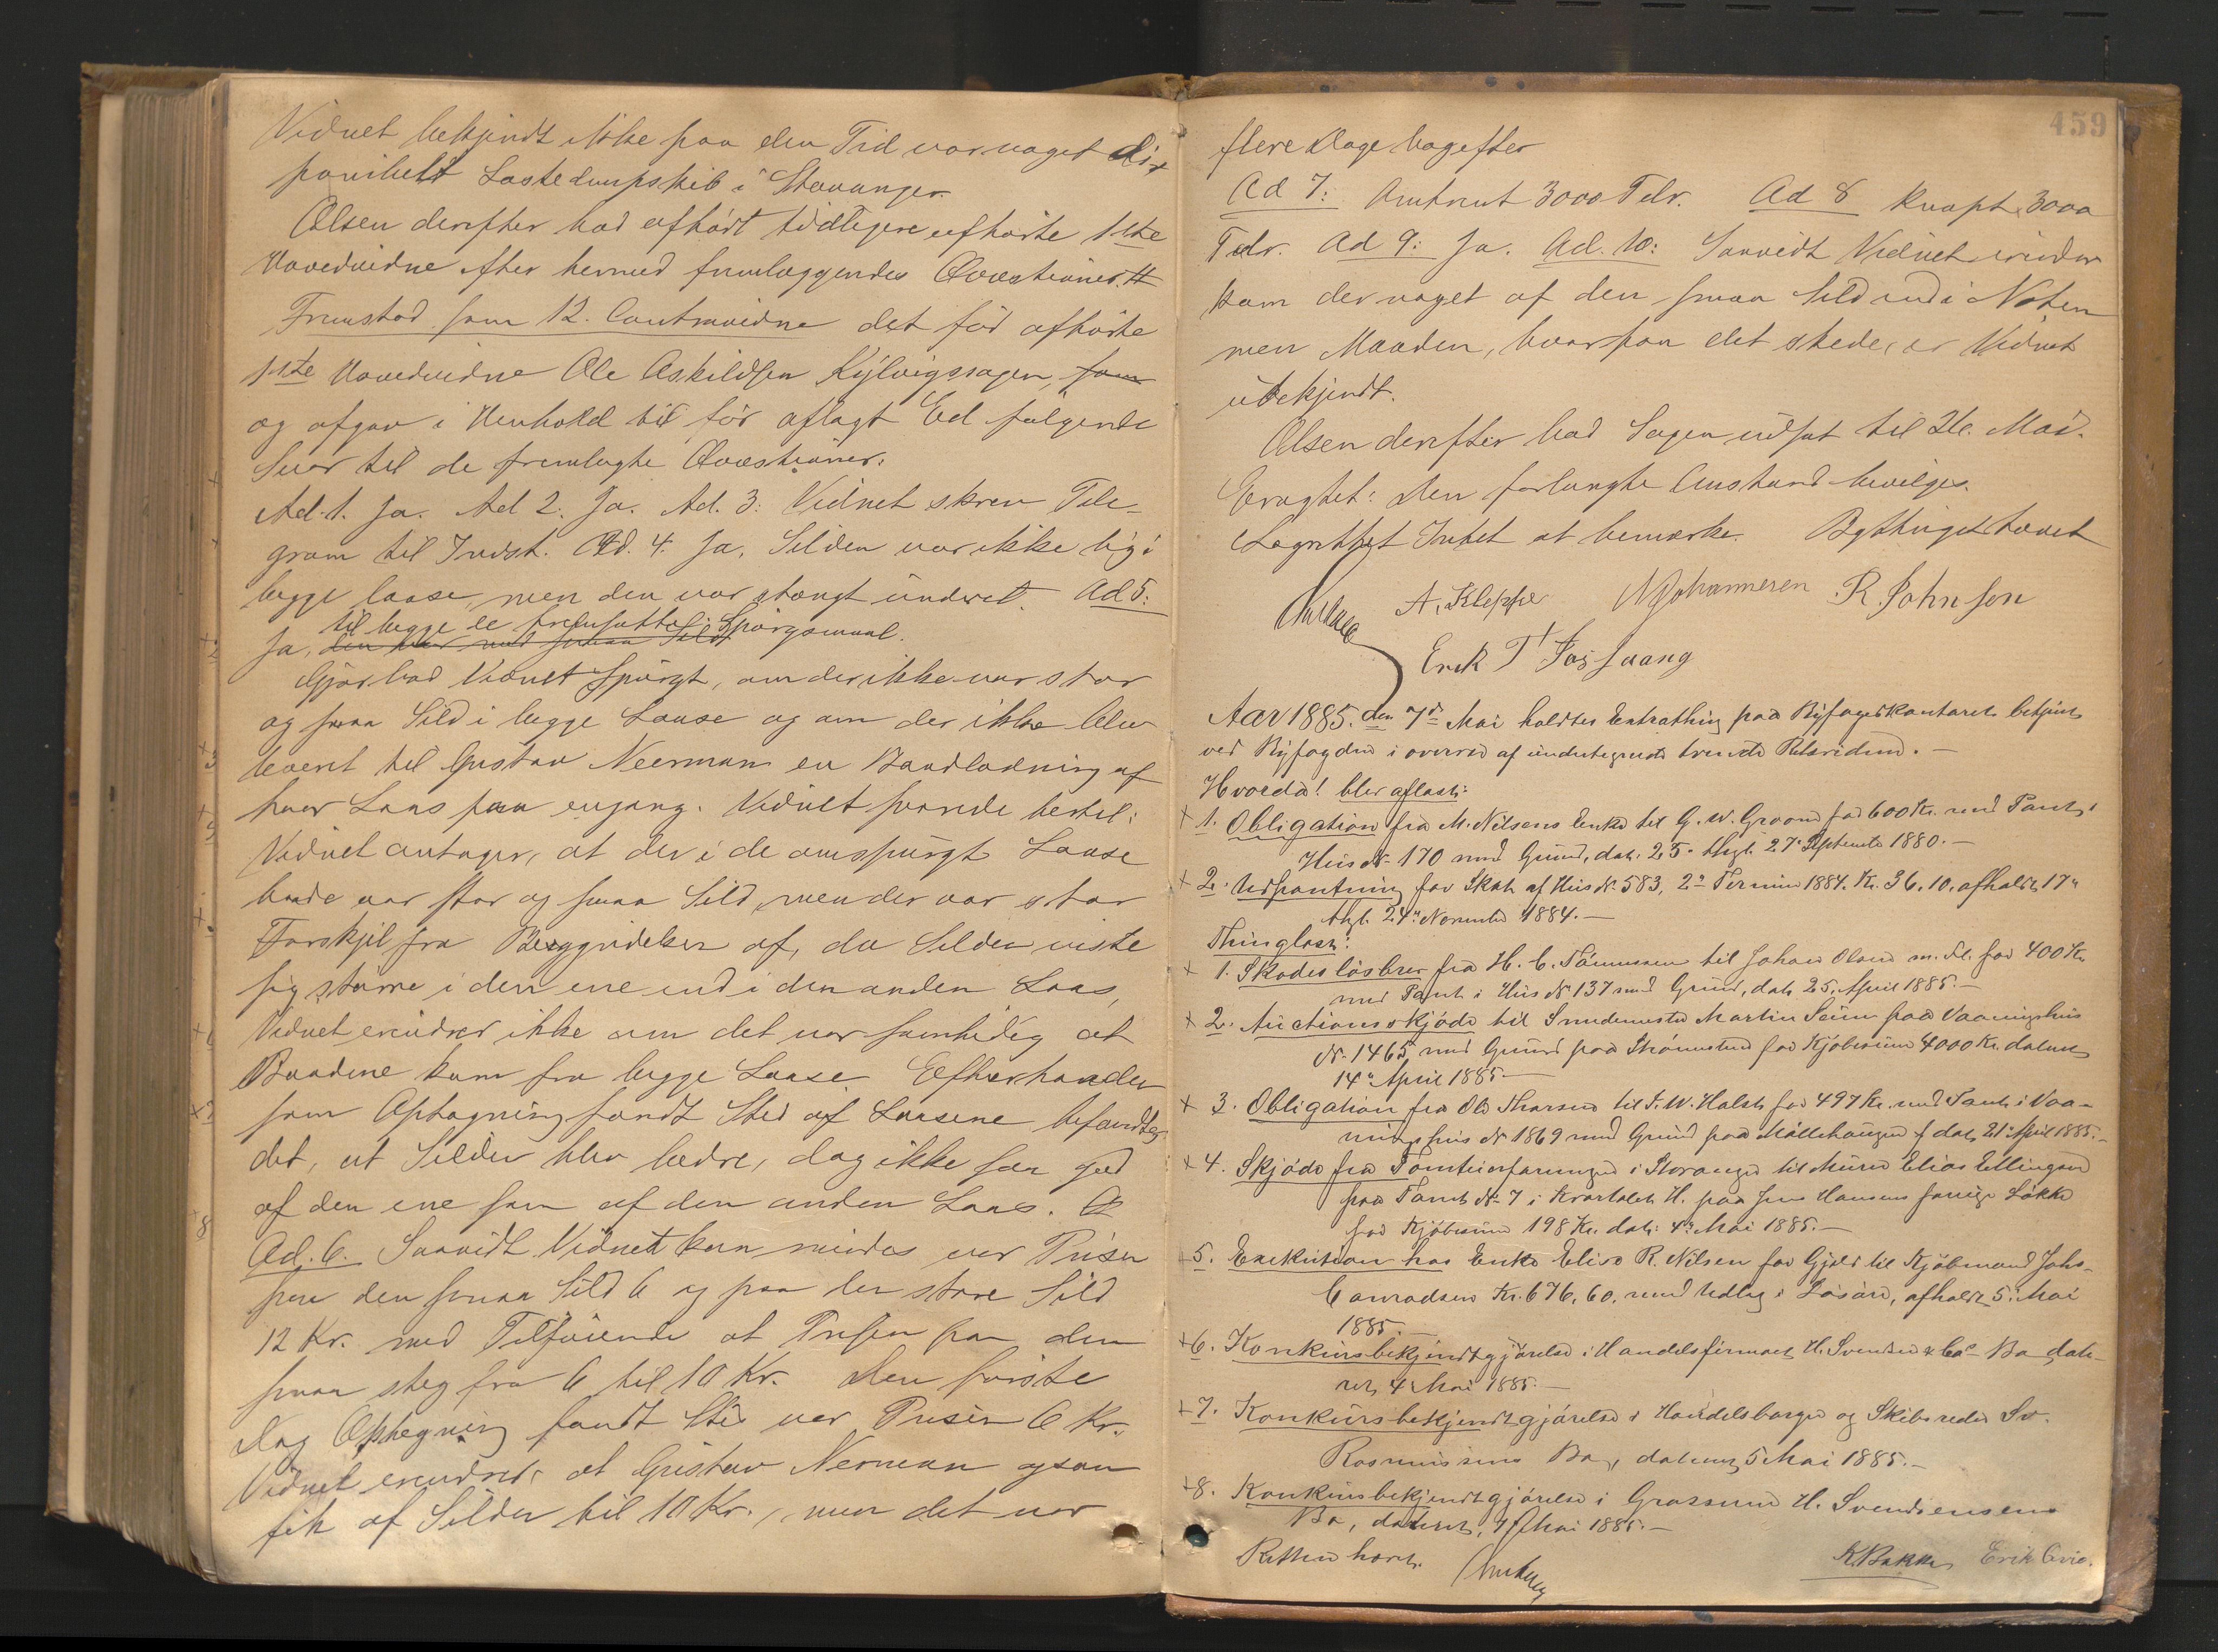 Vidnet bekjendt ikke paa den Tid var noget dis-
ponibelt Lastedampskib i Stavanger.
Olsen derefter bad afhørt tidligere afhørte 1ste
Hovedvidne efter hermed fremlæggendes Qvæstioner. #
Fremstod som 12. Contravidne det før afhørte
1ste Hovedvidne Ole Askildsen Kylvigssagen, som
og afgav i Henhold til før aflagt Ed følgende
Svar til de fremlagte Qvæstioner.
Ad. 1. Ja. Ad 2. Ja. Ad. 3: Vidnet skrev Tele-
gram til Indst. Ad. 4. Ja, Silden var ikke lig i
begge laase, men den var stængt under et. Ad 5:
til begge de fremsatte Spørgsmaal.
Ja, den var med smaa Sild
Gjør bad Vidnet spurgt, om der ikke var stor
og smaa Sild i begge Laase og om der ikke blev
leveret til Gustav Neerman en Baadladning af
hver Laas paa engang. Vidnet svarede hertil:
Vidnet antager, at der i de omspurgte Laase
baade var stor og smaa Sild, men der var stor
Forskjel fra Begyndelsen af, da Silden viste
sig større i den ene end i den anden Laas,
Vidnet erindrer ikke om det var samtidig at
Baadene kom fra begge Laase. Efterhaanden
som Optagning fandt Sted af Laasene befandtes
det, at Silden blev bedre, dog ikke saa god
af den ene som af den anden Laas.
Ad. 6. Saavidt Vidnet kan mindes var Prisen
paa den smaa Sild 6 og paa den store Sild
12 Kr. med Tilføiende at Prisen paa den
smaa steg fra 6 til 10 Kr. Den første
Dag Optagning fandt Sted var Prisen 6 Kr.
Vidnet erindrer at Gustav Nerman ogsaa
fik af Silden til 10 Kr., men det var
459
flere Dage bagefter
Ad 7: Omtrent 3000 Tdr. Ad 8 knapt 3000
Tdr. Ad 9: Ja. Ad. 10: Saavidt Vidnet erindrer
kom der noget af den smaa Sild ind i Noten
men Maaden, hvorpaa det skede, er Vidnet
ubekjendt.
Olsen derefter bad Sagen udsat til 21de Mai.
Eragtet: Den forlangte Anstand bevilges.
Lagrettet Intet at bemærke. Bythinget hævet
A. Kleppe N Johannesen R. Johnsen
Erik T Fossaang
Aar 1885. den 7de Mai holdtes Extrathing paa Byfogedkontoret betjent
ved Byfogden i overvær af undertegnede tvende Retsvidner. —
Hvorda! blev aflæst:
+ 1. Obligation fra M. Nilsens Enke til G. W. Groom for 600 Kr. med Pant i
Hus No 170 med Grund, dat. 25 thgl. 27 September 1880. —
+ 2. Udpantning for Skat af Hus No 583, 2den Termin 1884. Kr. 36.10. afholdt 17
thgl. 24 November 1884. —
Thinglæst:
+ 1. Skadesløsbrev fra H. C. Tønnessen til Johan Olsen m. Fl. for 400 Kr.
med Pant i Hus No 137 med Grund, dat. 25. April 1885. —
+ 2. Auctionsskjøde til Snedmester Martin Seim paa Vaaningshus
No 1465 med Grund paa Strømsteen for Kjøbesum 4000 Kr. dateret
14 April 1885 —
+ 3. Obligation fra Ole Thorsen til F. W. Halst for 497 Kr. med Pant i Vaa-
ningshus No 1869 med Grund paa Møllehaugen dat. 21 April 1885. —
+ 4. Skjøde fra Tomteierforeningen i Stavanger til Murer Elias Ellingsen
paa Tomt No 7 i Kvartalet H. paa Jens Hansens forrige Løkke
for Kjøbesum 198 Kr. dat: 4de Mai 1885. —
+ 5. Exekution hos Enke Elise R. Nilsen for Gjeld til Kjøbmand Johs.
Conradsen Kr. 676.60. med Udlæg i Løsøre, afholdt 5 Mai
1885. —
+ 6. Konkursbekjendtgjørelse i Handelsfirmaet H. Svendsen & Co Bo date-
ret 4 Mai 1885. —
+ 7. Konkursbekjendtgjørelse i Handelsborger og Skibsreder Sv.
Rosmussens Bo, dateret 5 Mai 1885. —
+ 8. Konkursbekjendtgjørelse i Grosserer H. Svendsensens
Bo, dateret, 7 Mai 1885. —
Retten hævet.
K Bakke Erik Evie.